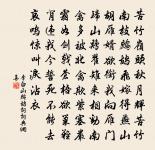 苦竹嶺頭秋月輝苦竹
南枝鷓鴣飛嫁得燕山
胡雁婿欲銜我向雁門
歸山雞翟雉來相勸南
禽多被北禽欺紫塞嚴
霜如劍戟蒼梧欲巢難
背違我今誓死不能去
哀鳴驚叫淚沾衣
李白山鷓鴣詞詩詞典網